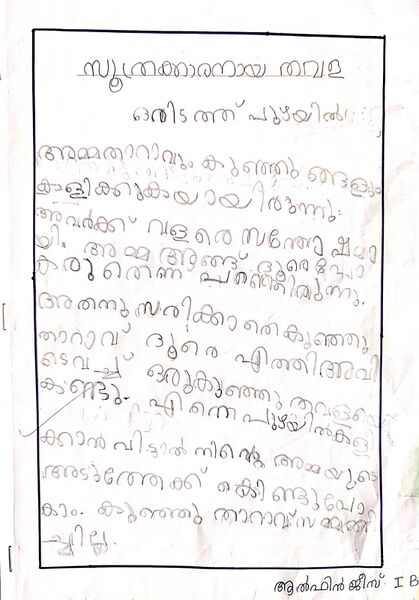 സൂത്രക്കാരനായ തവള
ഒരിടത്ത് പുഴയിൽ
അമ്മതാറാവും കുഞ്ഞു ങ്ങളും
കളിക്കുകയായിരുന്നു.
അവർക്ക് വളരെ സന്തോഷമാ
യി. അമ്മ അങ്ങ് ദൂരെപോ
കരുതെന്ന് പറഞ്ഞിരുന്നു.
അതനുസരിക്കാതെകുഞ്ഞു
താറാവ് ദൂരെ എത്തിഅവി
ടെവച്ച് ഒരുകുഞ്ഞു തവളയെ
കണ്ടു. എന്നെ പുഴയിൽകളി
ക്കാൻ വിട്ടാൽ നിന്റെ അമ്മയുടെ
അടുത്തേക്ക് കൊണ്ടുപോ
കാം. കുഞ്ഞു താറാവ്സമ്മതി
ച്ചില്ല.
ആൽഫിൻ ജീസ്. I B